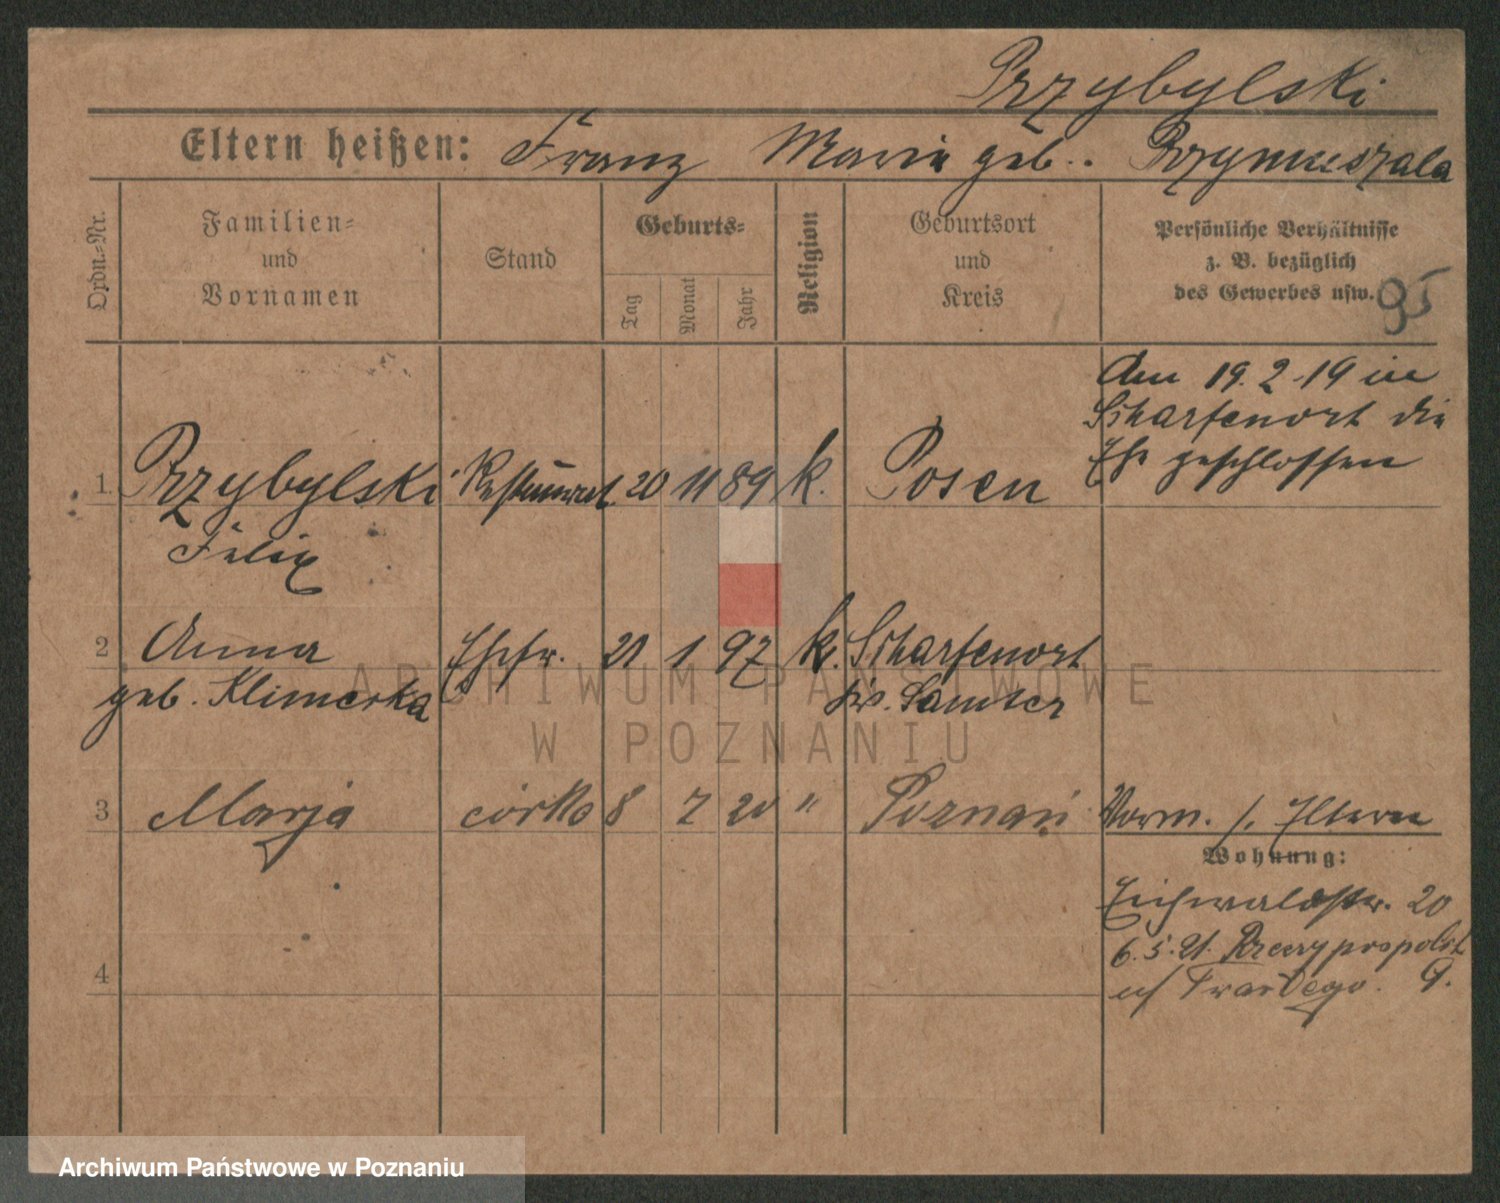 Przybylski
Eltern heißen: Franz Marie geb. Przymuszala
Ordn.-Nr.
Familien-
und
Vornamen
Stand
Geburts-
Tag
Monat
Jahr
Religion
Geburtsort
und
Kreis
Persönliche Verhältnisse
z. B. bezüglich
des Gewerbes usw.
95
Am 19.2.19 in
Scharfenort die
Ehe geschlossen
1. Przybylski 20 11 89 k. Posen
Felix
2 Anna Ehefr. 21 1 97 k. Scharfenort
geb. Klimecka Kr. Samter
3 Marja córka 8 2 20 " Poznań Vorm. s. Eltern
Wohnung:
Eichwaldstr. 20
6.5.21.
4
9.
ARCHIWUM PAŃSTWOWE
W POZNANIU
Archiwum Państwowe w Poznaniu